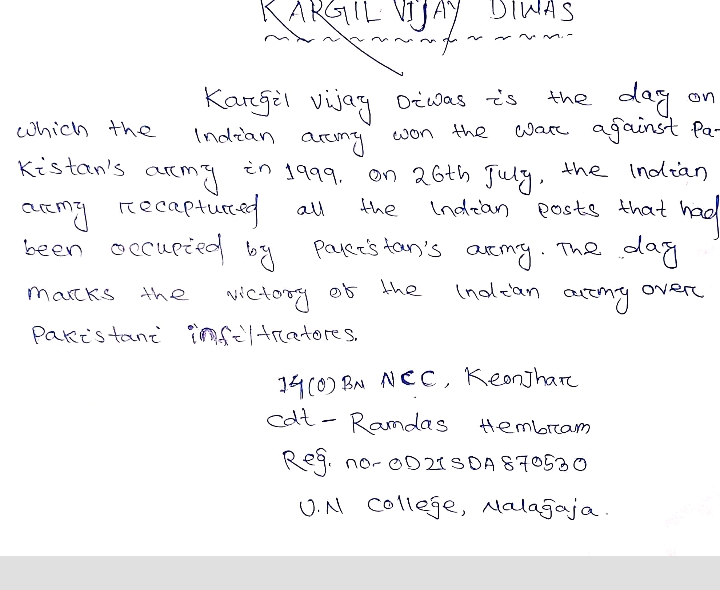 KARGIL VIJAY DIWAS
Kargil vijay Diwas is the day on
which the Indian army won the war against Pa-
kistan's army in 1999. on 26th July, the Indian
army recaptured all the Indian posts that had
been occupied by Pakistan's army. The day
marks the victory of the Indian army over
Pakistani infiltrators.
14(O) BN NCC, Keonjhar
Cdt - Ramdas Hembram
Reg. no- OD21SDA870530
U.N College, Nalagaja.